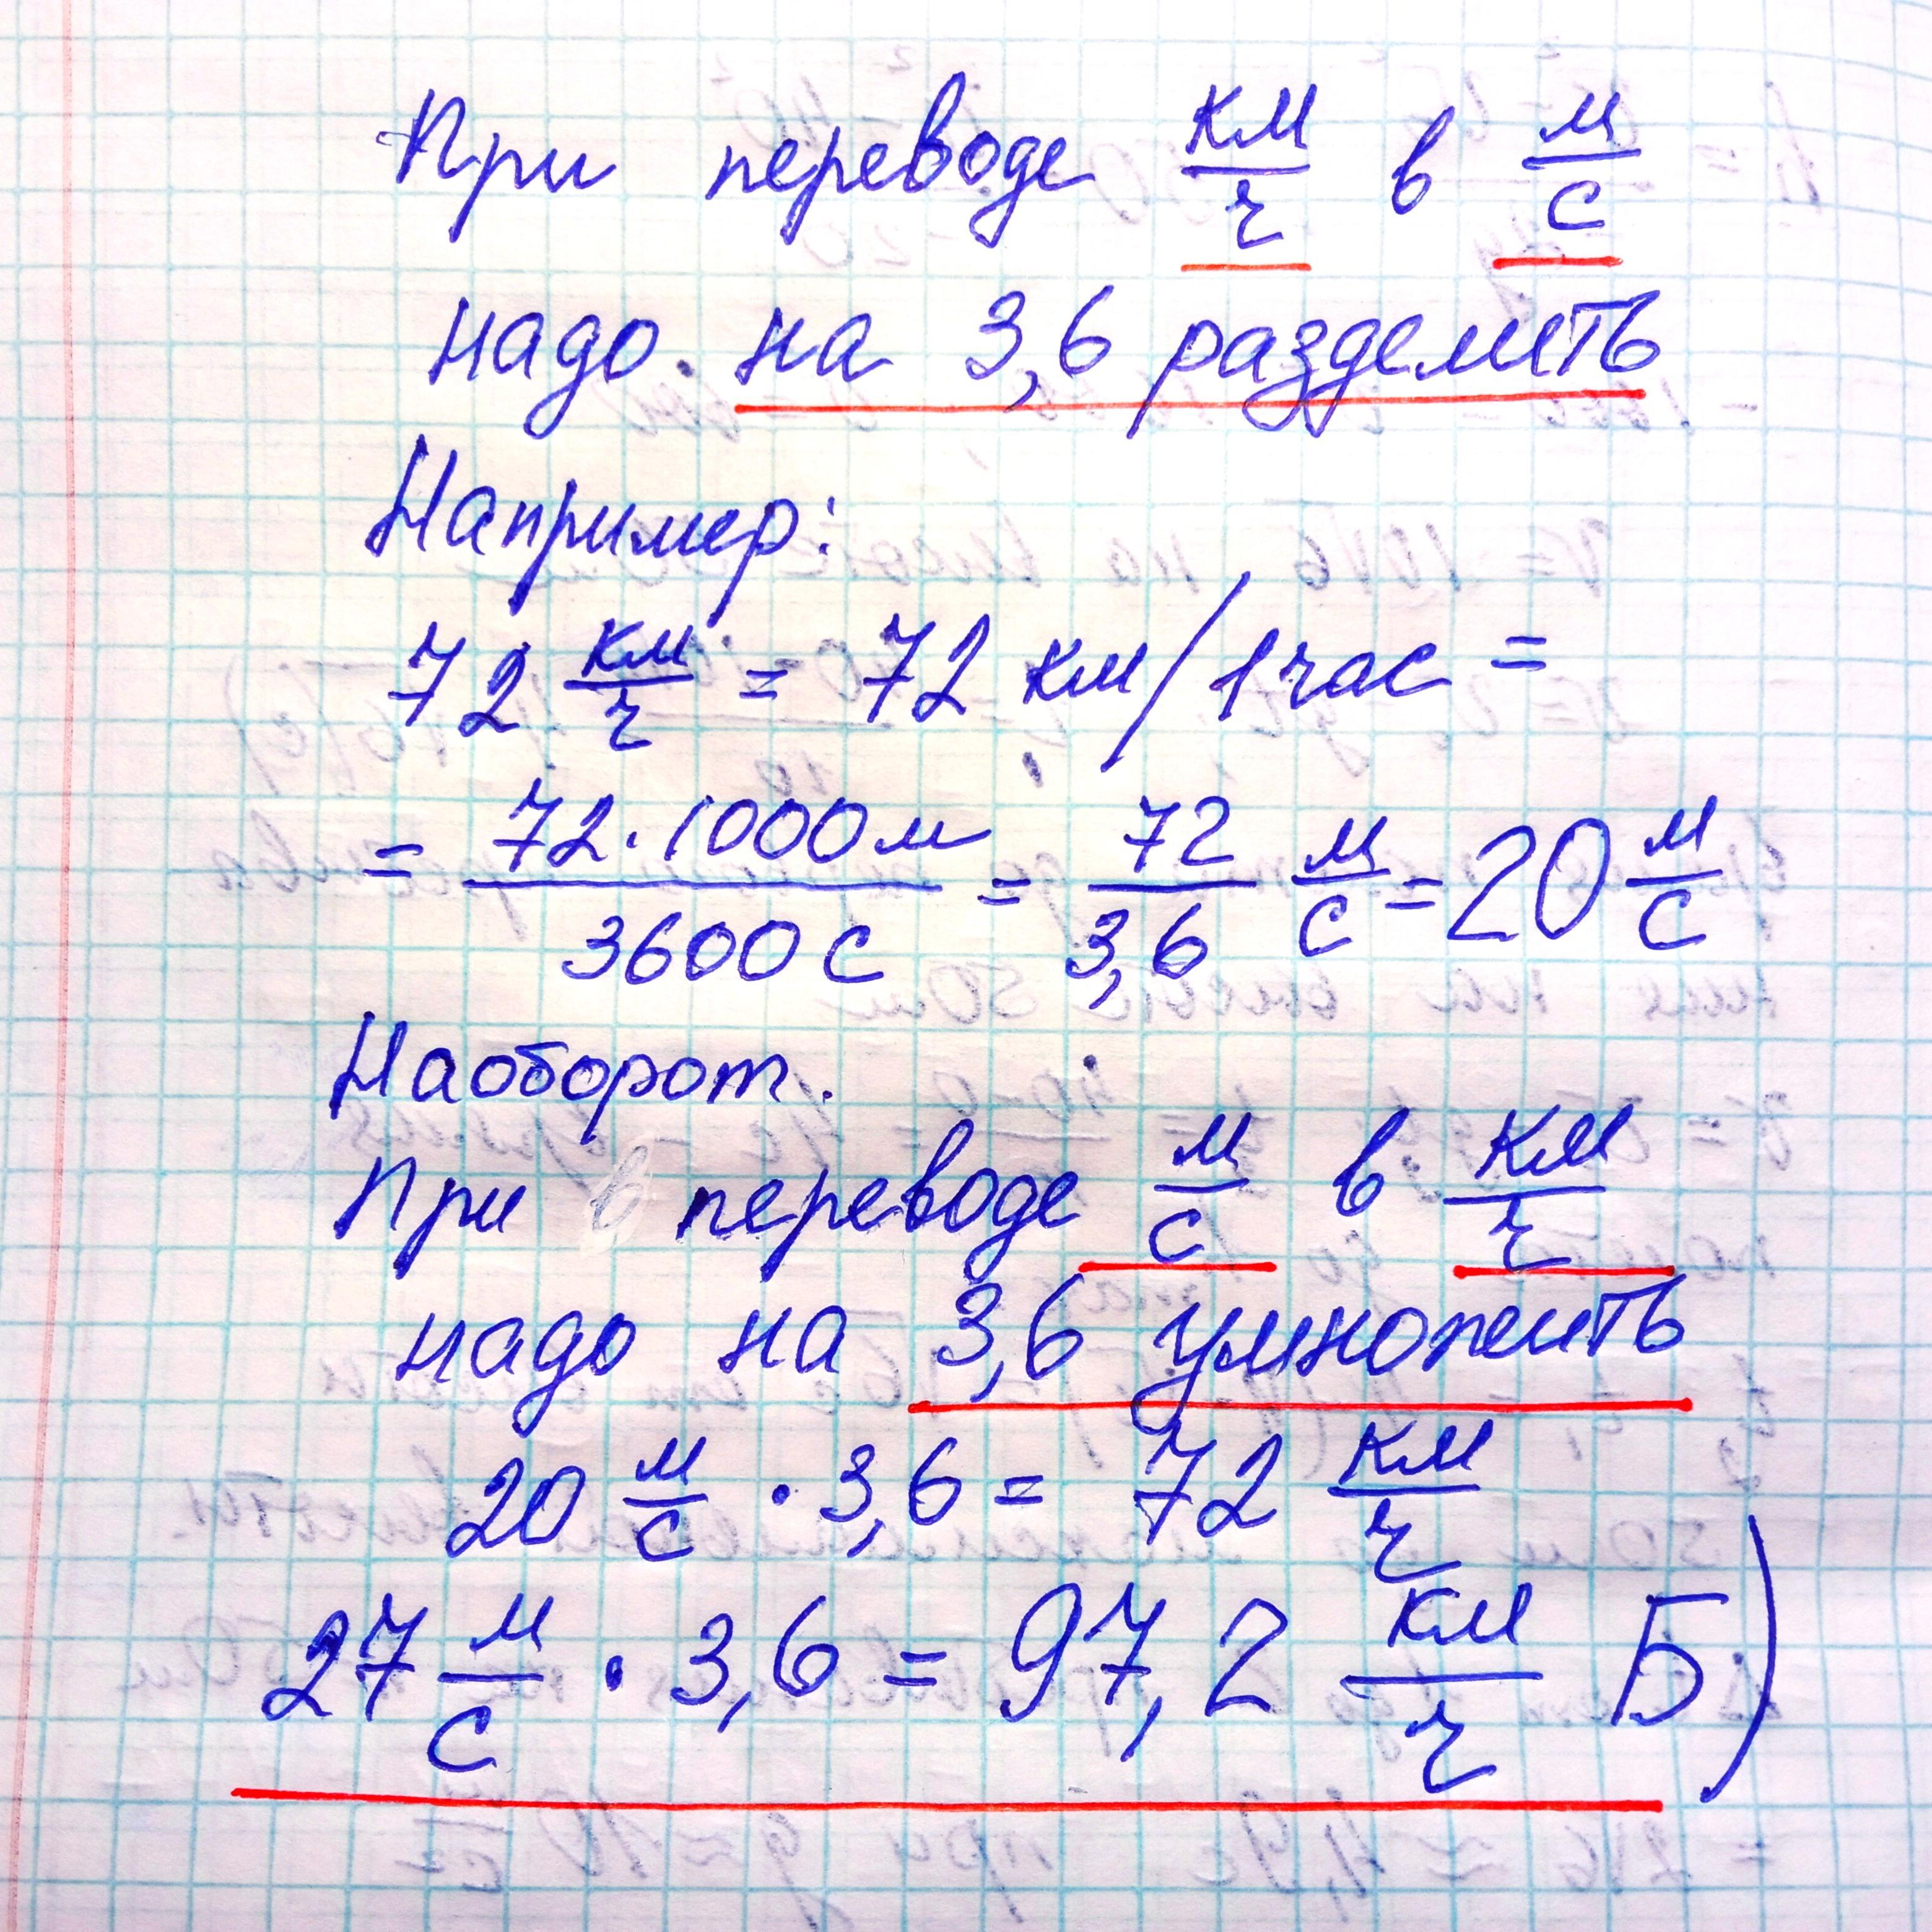 При переводе км/ч в м/с
надо на 3,6 разделить
Например:
72 км/ч = 72 км/1 час =
= 72·1000м/3600с = 72/3,6 м/с = 20 м/с
Наоборот.
При переводе м/с в км/ч
надо на 3,6 умножить
20 м/с · 3,6 = 72 км/ч
27 м/с · 3,6 = 97,2 км/ч Б)